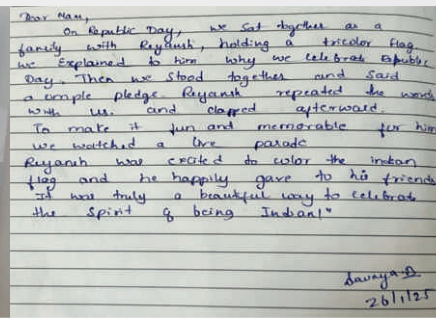 Dear Mam,
On Republic Day, we sat together as a
family with Reyansh, holding a tricolor flag.
We Explained to him why we celebrate Republic
Day. Then we stood together and said
a simple pledge. Reyansh repeated the words
with us. and clapped afterward.
To make it fun and memorable for him
we watched a live parade
Reyansh was excited to color the indian
flag and he happily gave to his friends
It was truly a beautiful way to celebrate
the spirit of being Indian!"
26/1/25